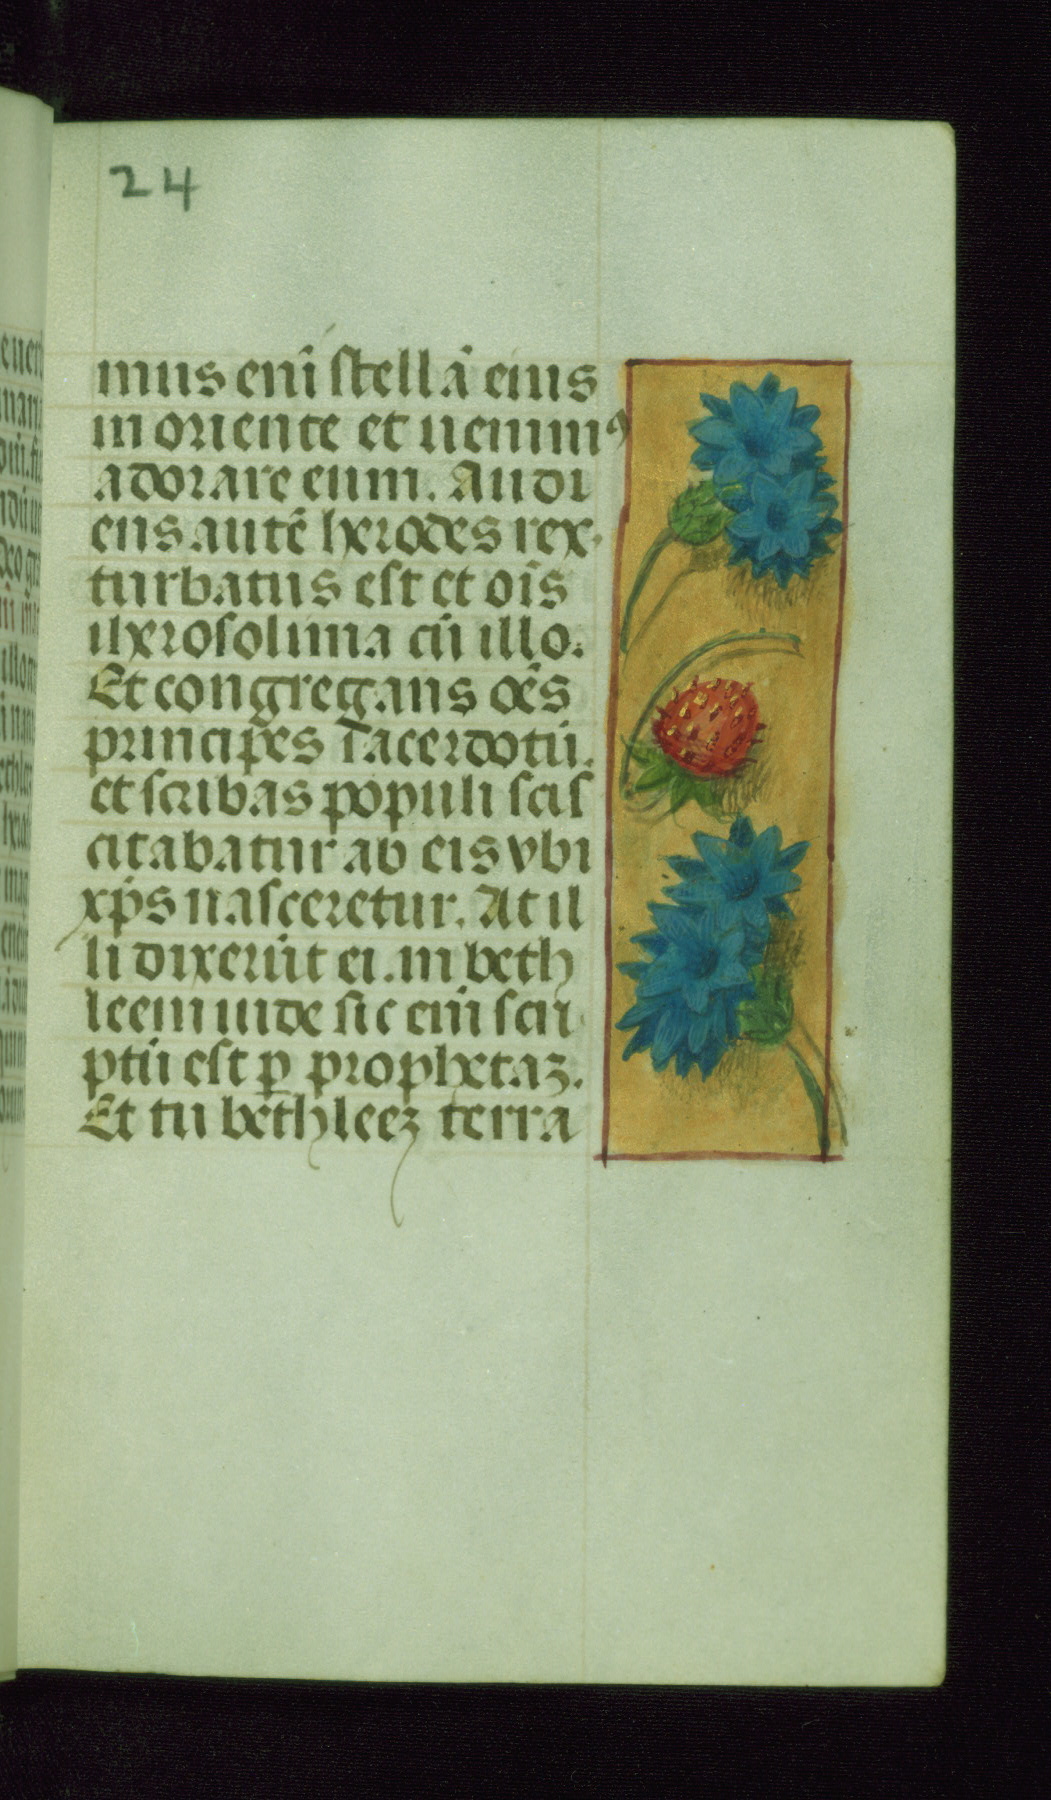 24
mus eni̅ stella̅ eius
in oriente et uenimꝰ
adorare eum. Audi
ens aute̅ herodes rex
turbatus est et oi̅s
iherosolima cu̅ illo.
Et congregans oe̅s
principes sacerdotu̅.
et scribas populi scis
citabatur ab eis vbi
xp̅s nasceretur. At il
li dixeru̅t ei. in beth
leem iude sic eni̅ scri
ptu̅ est p̲ prophetaʒ.
Et tu bethleeʒ terra